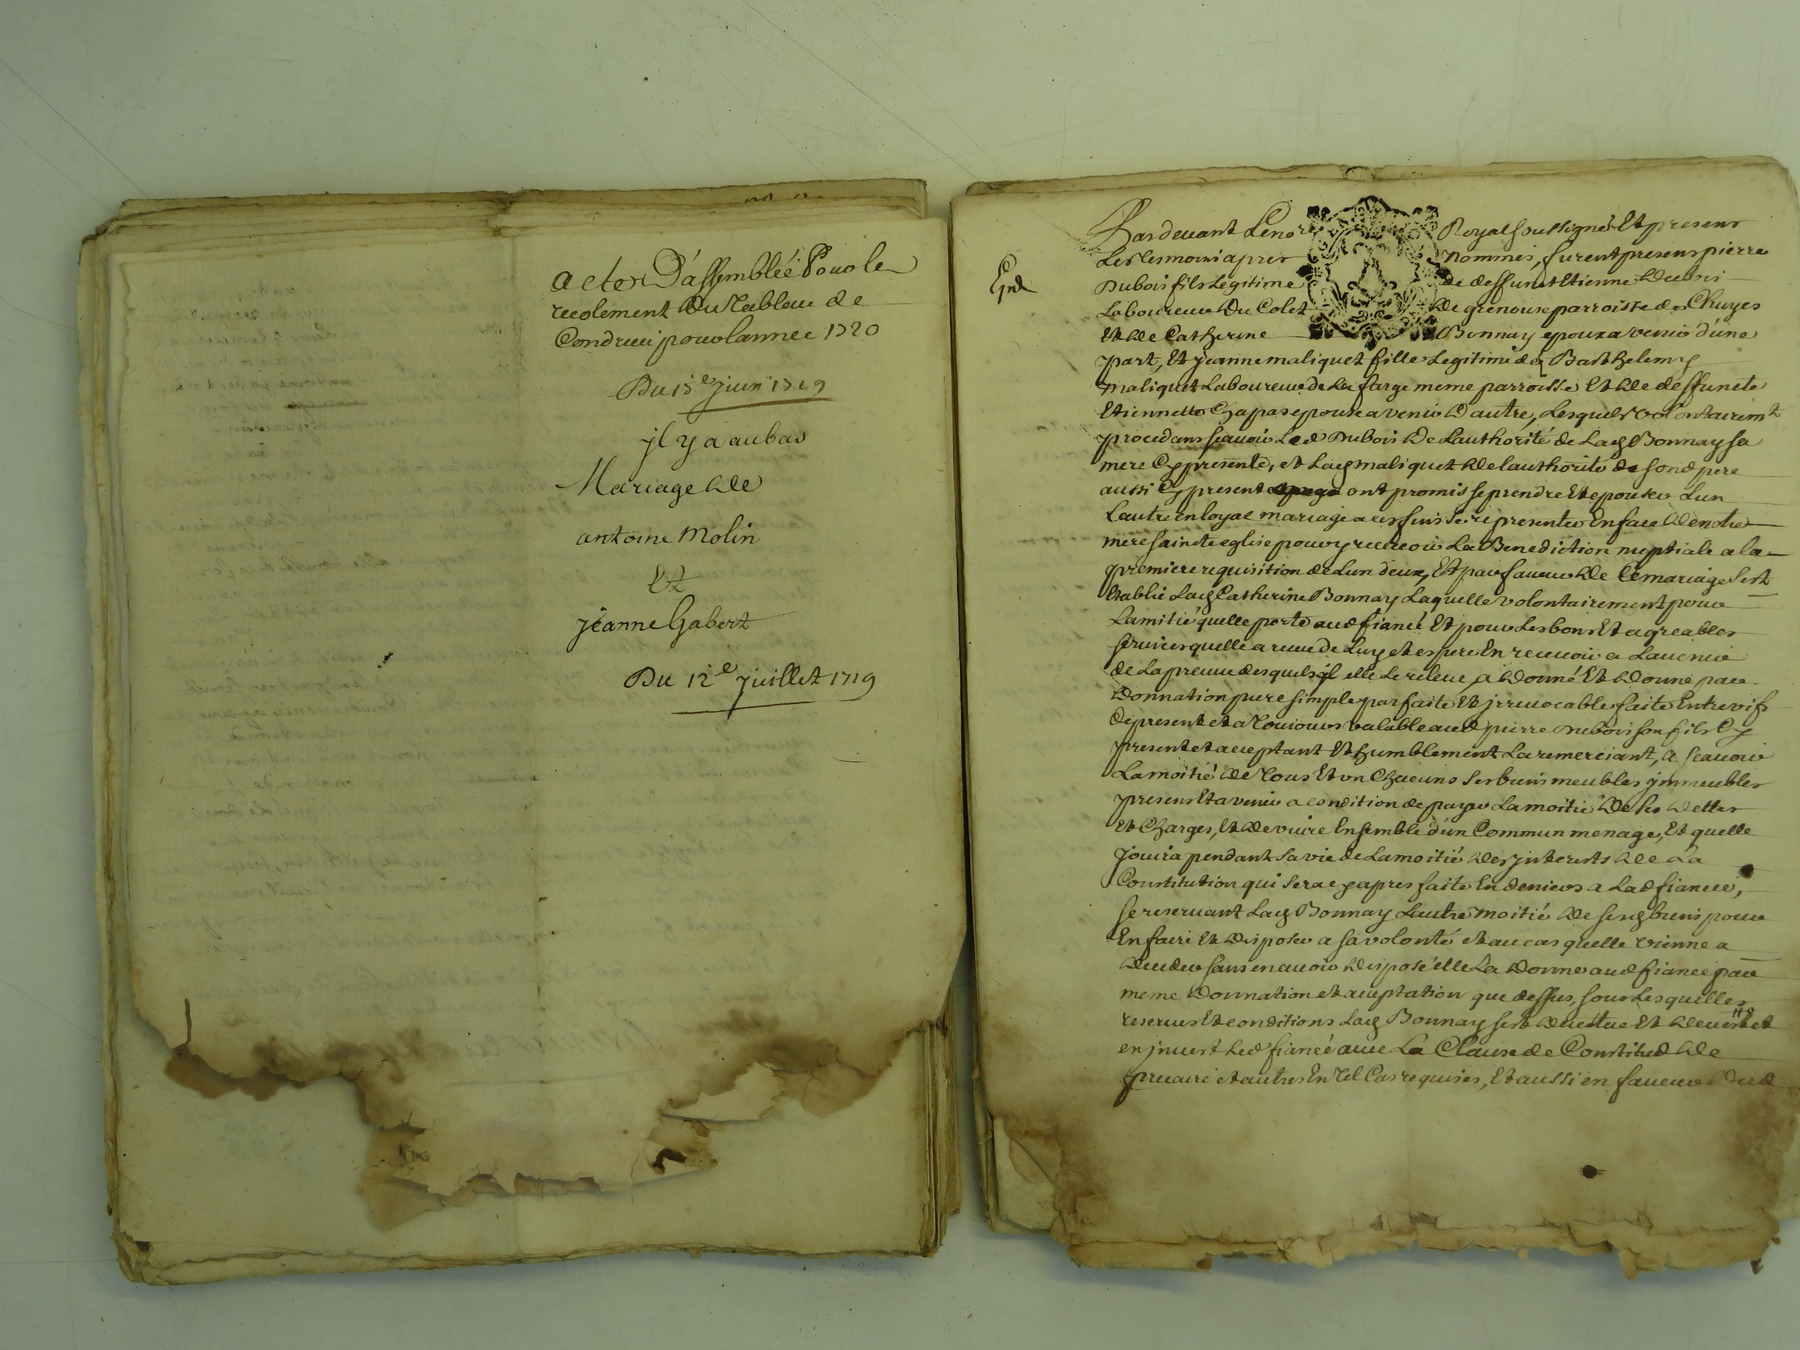 actes D'assemblée Pour le
recolement Du Tableau de
Condrieu pour lannee 1720
Du 15e juin 1719
jl y a au bas
Mariage de
antoine Molin
Et
jeanne Gabert
Du 12e juillet 1719
Pardevant Le nore Royal soussigné Et presens
Les tesmoins apres nommés, furent presens pierre
Dubois fils Legitime de deffunt Etienne Dubois
Laboureur Du Colet de grenouse parroisse de Chuyes
Et de Catherine Bonnay epoux a venir d'une
part, Et jeanne maliquet fille Legitime de Barthelemy
maliquet Laboureur de La farge meme parroisse Et de deffuncte
Etiennette Chapas epouse a venir D'autre, Lesquels volontairemt
procedans scauoir Led Dubois de Lauthorité de Lad Bonnay sa
mere Cy presente, et Lad maliquet de lauthorité de sond pere
aussi Cy present ont promis se prendre Et epouser Lun
Lautre en loyal mariage a ces fins se representer En face de notre
mere saincte eglise pour y receuoir La Benediction nuptiale a la
premiere requisition de Lun deux, Et par faueur de Ce mariage sest
Etablie Lad Catherine Bonnay Laquelle volontairement pour
Lamitié quelle porte aud fiancé Et pour Les bons Et agreables
seruices quelle a receu de Luy et espere En receuoir a Lauenir
de La preuue desquels elle Le releue, a donné Et donne par
Donnation pure simple parfaite Et jrreuocable faite Entre vifs
de present et a Toujours valable aud pierre Dubois son fils Cy
present et acceptant Et humblement La remerciant, a scauoir
La moitié de Tous Et vn Chacuns ses biens meubles jmmeubles
presens Et a venir a condition de payer La moitié de ses dettes
Et Charges, Et de viure Ensemble d'un Commun menage, Et quelle
jouira pendant sa vie de La moitié des jnterests de La
Constitution qui sera cy apres faite En deniers a Lad fiancée,
se reseruant Lad Bonnay Lautre moitié de sesd biens pour
En faire Et disposer a sa volonté et au cas quelle vienne a
deceder sans en auoir disposé elle La donne aud fiancé par
meme Donnation et acceptation que dessus, sous Lesquelles
reserues Et conditions Lad Bonnay sest deuetue Et
en jnuest Led fiancé auec La Clause de Constitud de
precaire et autres En Tel Cas requises, Et aussi en faueur Dud